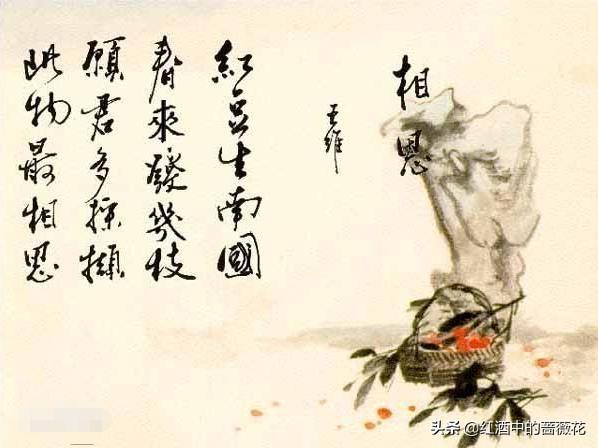 相思
王维
紅豆生南國
春來發幾枝
願君多採擷
此物最相思
头条 @红酒中的蔷薇花